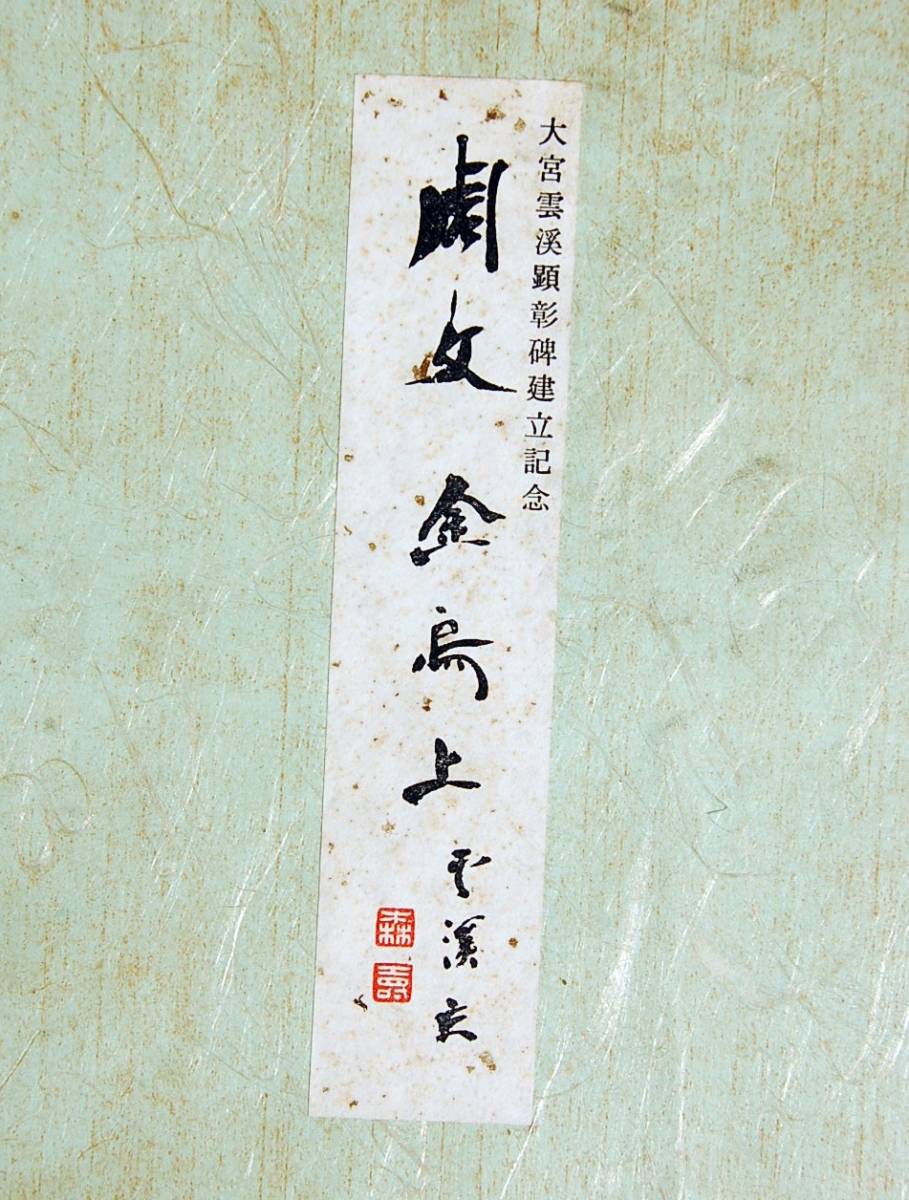 大宮雲溪顕彰碑建立記念
周文金為上
雲溪
森
壽